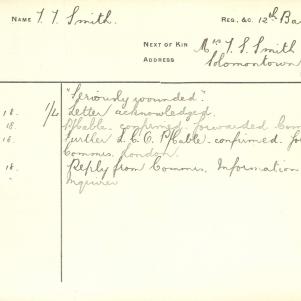 NAME T. T. Smith. REG. &C. 12th Ba
NEXT OF KIN Mrs T. S. Smith
ADDRESS Solomontown
"Seriously wounded".
18. 1/4 Letter acknowledged.
18. confirmed. forwarded Com
18. further cable confirmed.
Commrs. London.
18. Reply from Commrs. Information
Inquirer